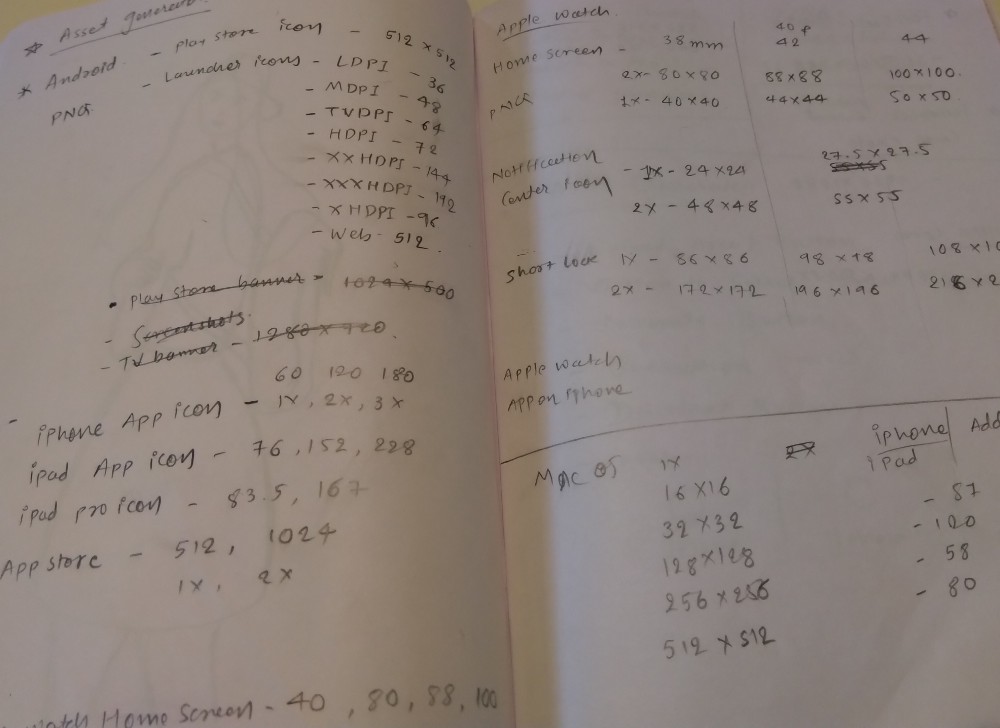 Asset
* Android - play store icon - 512 x 512
PNG - Launcher icons - LDPI - 36
- MDPI - 48
- TVDPI - 64
- HDPI - 72
- XXHDPI - 144
- XXXHDPI - 192
- XHDPI - 96
- Web - 512.
• play store banner - 1024 x 500
- Screenshots.
- TV banner - 1280 x 720.
60 120 180
- iphone App icon - 1x, 2x, 3x
ipad App icon - 76, 152, 228
ipad pro icon - 83.5, 167
App store - 512, 1024
1x, 2x
Home Screen - 40, 80, 88, 100
Apple watch.
40 p
Home screen - 38mm 42 44
2x - 80 x 80 88 x 88 100 x 100.
PNG 1x - 40 x 40 44 x 44 50 x 50.
Notification 27.5 x 27.5
Center icon - 1x - 24 x 24
2x - 48 x 48 55 x 55
Short look 1x - 86 x 86 98 x 98 108 x 10
2x - 172 x 172 196 x 196 216 x 2
Apple watch
App on iphone
Mac OS 1x 2x iphone Add
ipad
16 x 16 - 87
32 x 32 - 120
128 x 128 - 58
256 x 256 - 80
512 x 512